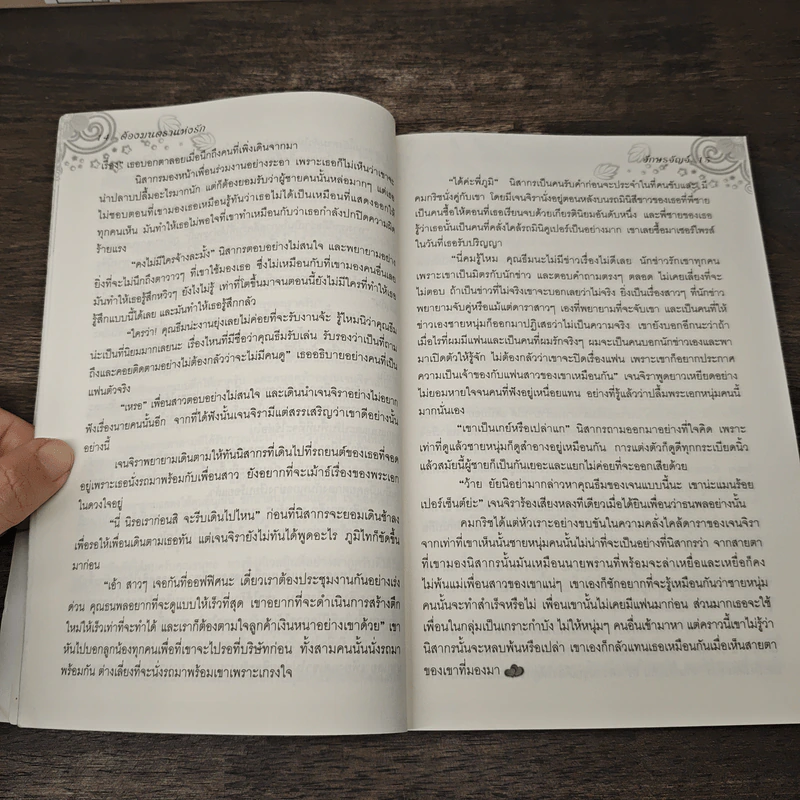 14 ต้องมนตราแห่งรัก
เรื่อง" เธอบอกตาลอยเมื่อนึกถึงคนที่เพิ่งเดินจากมา
นิสากรมองหน้าเพื่อนร่วมงานอย่างระอา เพราะเธอก็ไม่เห็นว่าเขาจะ
น่าปลาบปลื้มอะไรมากนัก แต่ก็ต้องยอมรับว่าผู้ชายคนนั้นหล่อมากๆ แต่เธอ
ไม่ชอบตอนที่เขามองเธอเหมือนรู้ทันว่าเธอไม่ได้เป็นเหมือนที่แสดงออกให้
ทุกคนเห็น มันทำให้เธอไม่พอใจที่เขาทำเหมือนกับว่าเธอกำลังปกปิดความผิด
ร้ายแรง
"คงไม่มีใครจ้างละมั้ง" นิสากรตอบอย่างไม่สนใจ และพยายามอย่าง
ยิ่งที่จะไม่นึกถึงตาวาวๆ ที่เขาใช้มองเธอ ซึ่งไม่เหมือนกับที่เขามองคนอื่นเลย
มันทำให้เธอรู้สึกหวิวๆ ยังไงไม่รู้ เท่าที่โตขึ้นมาจนตอนนี้ยังไม่มีใครที่ทำให้
รู้สึกแบบนี้ได้เลย และมันทำให้เธอรู้สึกกลัว
"ใครว่า! คุณธีมน่ะงานยุ่งเลยไม่ค่อยที่จะรับงานจ้ะ รู้ไหมนิว่าคุณธีม
น่ะเป็นที่นิยมมากเลยนะ เรื่องไหนที่มีชื่อว่าคุณธีมรับเล่น รับรองว่าเป็นที่ถาม
ถึงและคอยติดตามอย่างไม่ต้องกลัวว่าจะไม่มีคนดู" เธออธิบายอย่างคนที่เป็น
แฟนตัวจริง
"เหรอ" เพื่อนสาวตอบอย่างไม่สนใจ และเดินนำเจนจิราอย่างไม่อยาก
ฟังเรื่องนายคนนั้นอีก จากที่ได้ฟังนั้นเจนจิรามีแต่สรรเสริญว่าเขาดีอย่างนั้น
อย่างนี้
เจนจิราพยายามเดินตามให้ทันนิสากรที่เดินไปที่รถยนต์ของเธอที่จอด
อยู่เพราะเธอนั่งรถมาพร้อมกับเพื่อนสาว ยังอยากที่จะเม้าธ์เรื่องของพระเอก
ในดวงใจอยู่
"นี่ นิรอเราก่อนสิ จะรีบเดินไปไหน" ก่อนที่นิสากรจะยอมเดินช้าลง
เพื่อรอให้เพื่อนเดินตามเธอทัน แต่เจนจิรายังไม่ทันได้พูดอะไร ภูมิไทก็ขัดขึ้น
มาก่อน
"เอ้า สาวๆ เจอกันที่ออฟฟิศนะ เดี๋ยวเราต้องประชุมงานกันอย่างเร่ง
ด่วน คุณธนพลอยากที่จะดูแบบให้เร็วที่สุด เขาอยากที่จะดำเนินการสร้างตึก
ใหม่ให้เร็วเท่าที่จะทำได้ และเราก็ต้องตามใจลูกค้าเงินหนาอย่างเขาด้วย" เขา
หันไปบอกลูกน้องทุกคนเพื่อที่เขาจะไปรอที่บริษัทก่อน ทั้งสามคนนั้นนั่งรถมา
พร้อมกัน ต่างเลี่ยงที่จะนั่งรถมาพร้อมเขาเพราะเกรงใจ
อักษรอัญจ์ 15
"ได้ค่ะพี่ภูมิ" นิสากรเป็นคนรับคำก่อนจะประจำในที่คนขับและมี
คมกริชนั่งคู่กับเขา โดยมีเจนจิรานั่งอยู่ตอนหลังบนรถมินิสีขาวของเธอที่พี่ชาย
เป็นคนซื้อให้ตอนที่เธอเรียนจบด้วยเกียรตินิยมอันดับหนึ่ง และพี่ชายของเธอ
รู้ว่าเธอนั้นเป็นคนที่คลั่งไคล้รถมินิคูเปอร์เป็นอย่างมาก เขาเลยซื้อมาเซอร์ไพรส์
ในวันที่เธอรับปริญญา
"นี่คมรู้ไหม คุณธีมน่ะไม่มีข่าวเรื่องไม่ดีเลย นักข่าวรักเขาทุกคน
เพราะเขาเป็นมิตรกับนักข่าว และตอบคำถามตรงๆ ตลอด ไม่เคยเลี่ยงที่จะ
ไม่ตอบ ถ้าเป็นข่าวที่ไม่จริงเขาจะบอกเลยว่าไม่จริง ยิ่งเป็นเรื่องสาวๆ ที่นักข่าว
พยายามจับคู่หรือแม้แต่ดาราสาวๆ เองที่พยายามที่จะจับเขา และเป็นคนที่ให้
ข่าวเองชายหนุ่มก็ออกมาปฏิเสธว่าไม่เป็นความจริง เขายังบอกอีกนะว่าถ้า
เมื่อไรที่ผมมีแฟนและเป็นคนที่ผมรักจริงๆ ผมจะเป็นคนบอกนักข่าวเองและพา
มาเปิดตัวให้รู้จัก ไม่ต้องกลัวว่าเขาจะปิดเรื่องแฟน เพราะเขาก็อยากประกาศ
ความเป็นเจ้าของกับแฟนสาวของเขาเหมือนกัน" เจนจิราพูดยาวเหยียดอย่าง
ไม่ยอมหายใจจนคนที่ฟังอยู่เหนื่อยแทน อย่างที่รู้แล้วว่าปลื้มพระเอกหนุ่มคนนี้
มากนั่นเอง
"เขาเป็นเกย์หรือเปล่าแก" นิสากรถามออกมาอย่างที่ใจคิด เพราะ
เท่าที่ดูแล้วชายหนุ่มก็ดูสำอางอยู่เหมือนกัน การแต่งตัวก็ดูดีทุกกระเบียดนิ้ว
แล้วสมัยนี้ผู้ชายก็เป็นกันเยอะและแยกไม่ค่อยที่จะออกเสียด้วย
"ว้าย ยัยนิอย่ามากล่าวหาคุณธีมของเจนแบบนี้นะ เขาน่ะแมนร้อย
เปอร์เซ็นต์ย่ะ" เจนจิราร้องเสียงหลงทีเดียวเมื่อได้ยินเพื่อนว่าธนพลอย่างนั้น
คมกริชได้แต่หัวเราะอย่างขบขันในความคลั่งไคล้ดาราของเจนจิรา
จากเท่าที่เขาเห็นนั้นชายหนุ่มคนนั้นไม่น่าที่จะเป็นอย่างที่นิสากรว่า จากสายตา
ที่เขามองนิสากรนั้นมันเหมือนนายพรานที่พร้อมจะล่าเหยื่อและเหยื่อก็คง
ไม่พ้นแม่เพื่อนสาวของเขาแน่ๆ เขาเองก็ชักอยากที่จะรู้เหมือนกันว่าชายหนุ่ม
คนนั้นจะทำสำเร็จหรือไม่ เพื่อนเขานั้นไม่เคยมีแฟนมาก่อน ส่วนมากเธอจะใช้
เพื่อนในกลุ่มเป็นเกราะกำบัง ไม่ให้หนุ่มๆ คนอื่นเข้ามาหา แต่คราวนี้เขาไม่รู้ว่า
นิสากรนั้นจะหลบพ้นหรือเปล่า เขาเองก็กลัวแทนเธอเหมือนกันเมื่อเห็นสายตา
ของเขาที่มองมา